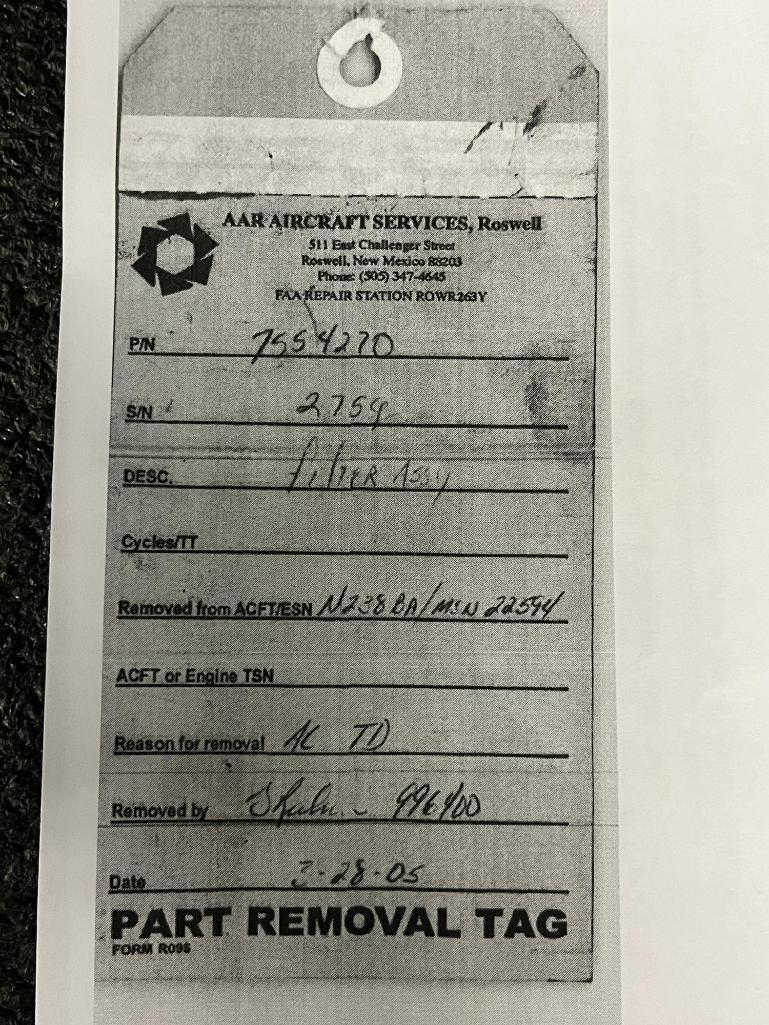 AAR AIRCRAFT SERVICES, Roswell
511 East Challenger Street
Roswell, New Mexico 88203
Phone: (505) 347-4645
FAA REPAIR STATION ROWR263Y
P/N 7554270
S/N
DESC. Filter Assy
Cycles/TT
Removed from ACFT/ESN N238BA/MSN 22594
ACFT or Engine TSN
Reason for removal AC TD
Removed by 996400
Date 3-28-05
PART REMOVAL TAG
FORM R095